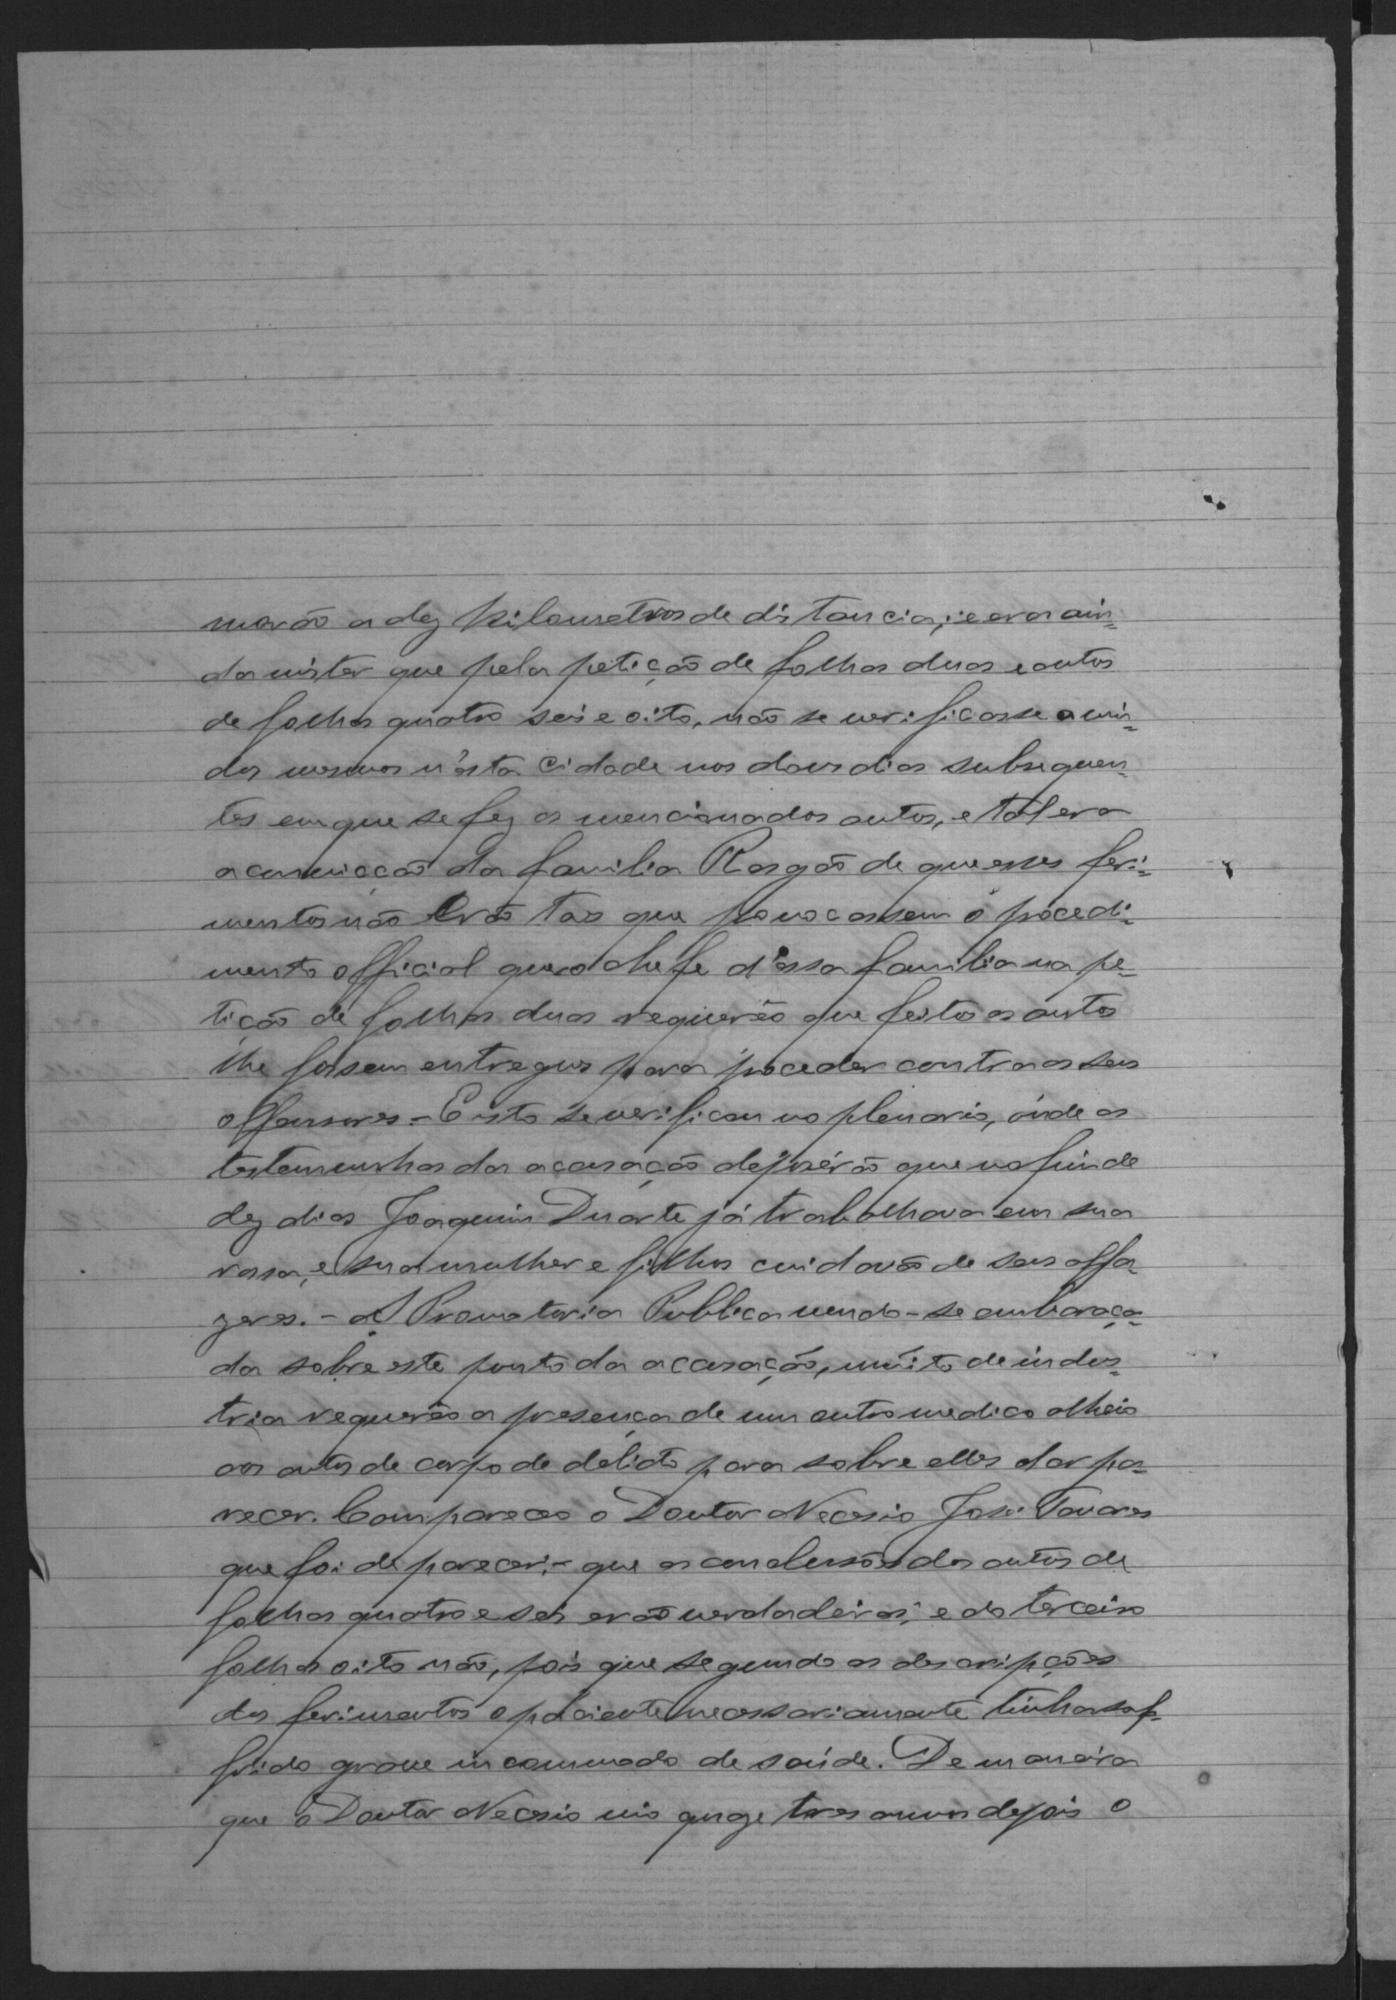 morão a dez kilometros de distancia; e era ain=
da mister que pela petição de folhas duas e autos
de folhas quatro seis e oito, não se verificasse a vin=
da mesmos n'ésta Cidade nos dous dias subsequen=
tes em que se fez os mencionados autos, e tal era
a convicção da familia Rasgão de que esses feri=
mentos não erão taes que provocassem o procedi=
mento official que o chefe d'essa familia na pe=
tição de folhas duas requerêo que feito os autos
lhe fossem entregues para proceder contra os seus
offensores = E isto se verificou no plenario, onde as
testemunhas da accusação depozérão que no fim de
dez dias Joaquim Duarte já trabalhava em sua
rossa, e sua mulher e filhos cuidavão de seus affa=
zeres. - A Promotoria Publica vendo-se embaraça=
da sobre este ponto da accusação, muito de indus=
tria requerêo a presença de um outro medico alheio
aos autos de corpo de delicto para sobre elles dar pa=
recer. Compareceo o Doutor Necesio José Tavares
que foi de parecer; - que as conclusões dos autos de
folhas quatro e seis erão verdadeiras; e do terceiro
folhas oito não, pois que segundo as descripções
dos ferimentos o paciente necessariamente tinha sof=
frido grave incommodo de saúde. De maneira
que o Doutor Necesio vio quaze tres annos depois o